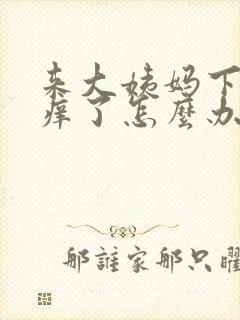 来大姨妈下
痒了怎麼办
那誰家那只